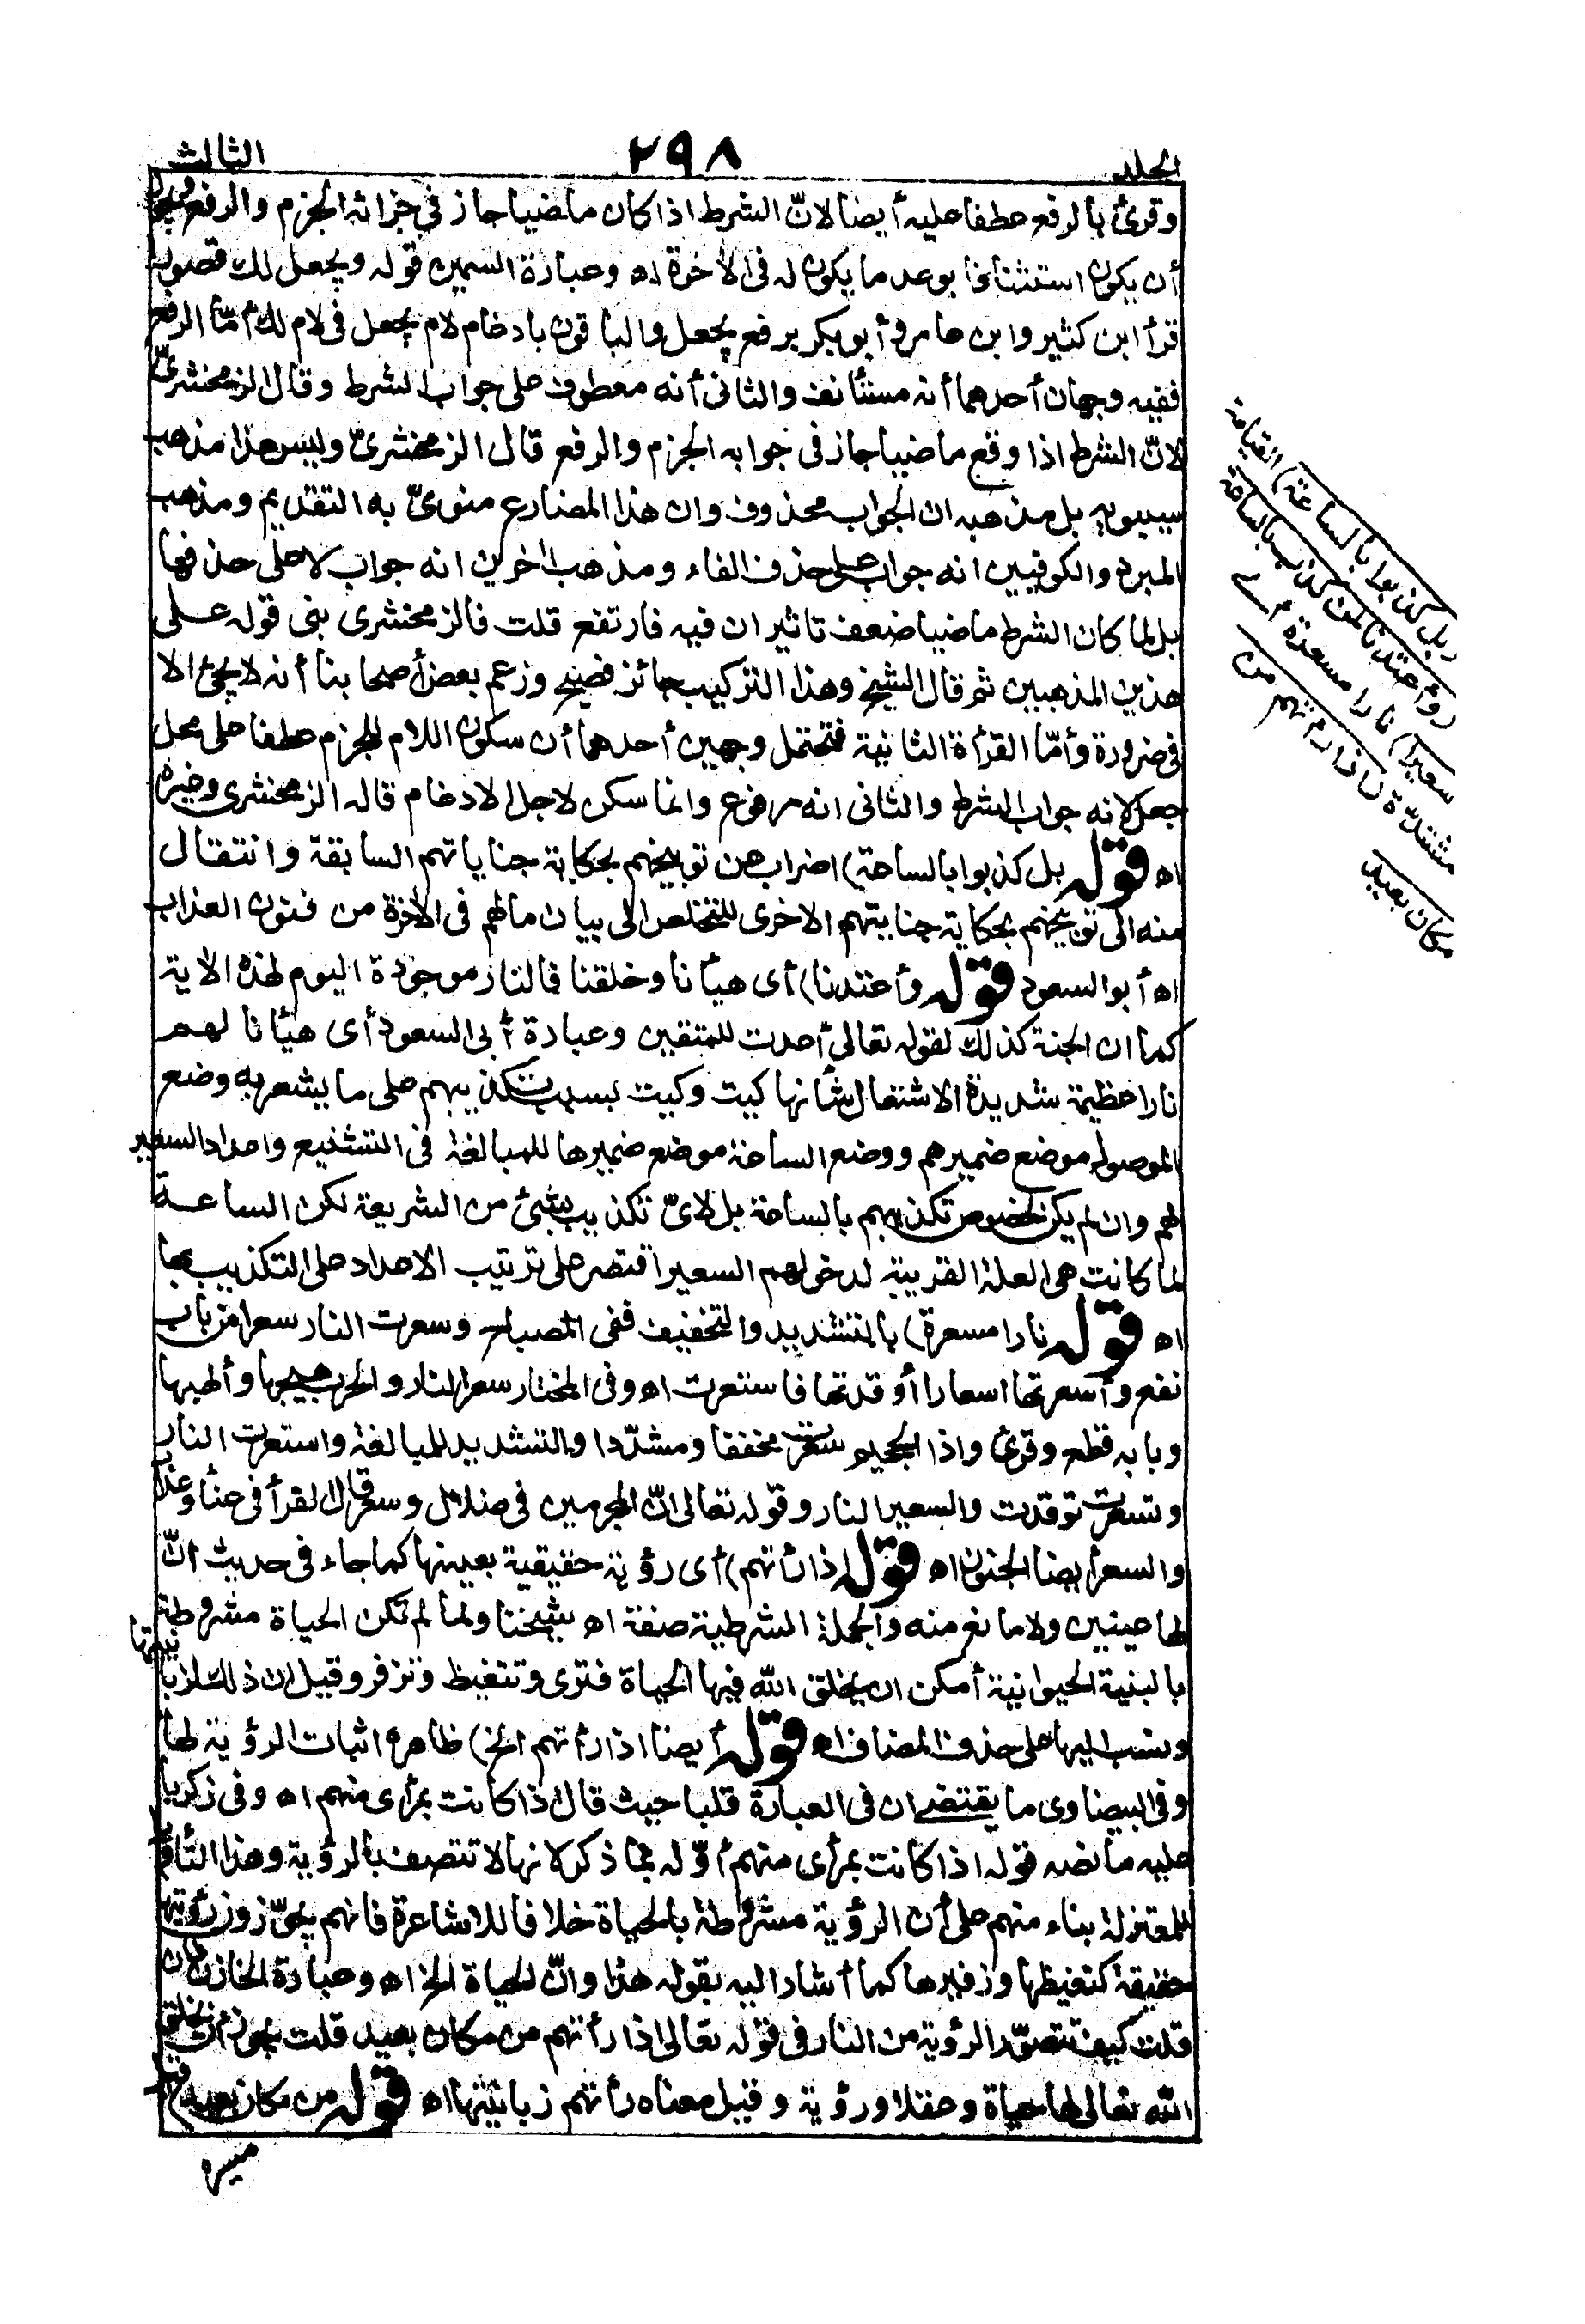 الجلد ٢٩٨ الثالث
وقرئ بالرفع عطفا عليه أيضا لانّ الشرط اذا كان ماضيا جاز في جزائه الجزم والرفع ويجوز
أن يكون استئنافا بوعد ما يكون له فى الأخرة اه وعبارة السمين قوله ويجعل لك قصورا
قرأ ابن كثير وابن عامر وأبو بكر برفع يجعل والباقون بادغام لام يجعل فى لام لك أمّا الرفع
ففيه وجهان أحدهما أنه مستأنف والثانى أنه معطوف على جواب الشرط وقال الزمخشرىّ
لانّ الشرط اذا وقع ماضيا جاز فى جوابه الجزم والرفع قال الزمخشرىّ وليس هذا مذهب
سيبويه بل مذهبه ان الجواب محذوف وان هذا المضارع منوىّ به التقديم ومذهب
المبرد والكوفيين انه جواب على حذف الفاء ومذهب أخرين انه جواب لا على حذفها
بل لما كان الشرط ماضيا ضعف تاثير ان فيه فارتفع قلت فالزمخشرى بنى قوله على
هذين المذهبين ثم قال الشيخ وهذا التركيب جائز فصيح وزعم بعض أصحابنا أنه لا يجئ الا
فى ضرورة وأمّا القرأة الثانية فتحتمل وجهين أحدهما أن سكون اللام للجزم عطفا على محل
جعل لانه جواب الشرط والثانى انه مرفوع وانما سكن لاجل الادغام قاله الزمخشرى وغيره
اه قوله بل كذبوا بالساعة) اضراب عن توبيخهم بحكاية جناياتهم السابقة وانتقال
منه الى توبيخهم بحكاية جنايتهم الاخرى للتخلص الى بيان ما لهم فى الأخرة من فنون العذاب
اه أبو السعود قوله وأعتدنا) أى هيأنا وخلقنا فالنار موجودة اليوم لهذه الاية
كما ان الجنة كذلك لقوله تعالى أعدت للمتقين وعبارة أبى السعود أى هيأنا لهم
نارا عظيمة شديدة الاشتعال شأنها كيت وكيت بسبب تكذيبهم على ما يشعر به وضع
الموصول موضع ضميرهم ووضع الساعة موضع ضميرها للمبالغة فى التشنيع واعداد السعير
لهم وان لم يكن لخصوص تكذيبهم بالساعة بل لاىّ تكذيب بشئ من الشريعة لكن الساعة
لما كانت هى العلة القريبة لدخولهم السعير اقتصر على ترتيب الاعداد على التكذيب بها
اه قوله نارا مسعرة) بالتشديد والتخفيف ففى المصباح وسعرت النار سعرا من باب
نفع وأسعرتها اسعارا أوقدتها فاستعرت اه وفى المختار سعر النار والحرب هيجها وألهبها
وبابه قطع وقرئ واذا الجحيم سعرت مخففا ومشدّدا والتشديد للمبالغة واستعرت النار
وتسعرت توقدت والسعير النار وقوله تعالى انّ المجرمين فى ضلال وسعر قال الفرأ فى عنأ وعذاب
والسعر أيضا الجنون اه قوله اذا رأتهم) أى رؤية حقيقية بعينها كما جاء فى حديث انّ
لها عينين ولا مانع منه والجملة الشرطية صفة اه شيخنا ولما لم تكن الحياة مشروطة
بالبنية الحيوانية أمكن ان يخلق الله فيها الحياة فترى وتتغيظ وتزفر وقيل ان ذلك لزبانيتها
ونسب اليها على حذف المضاف اه قوله أيضا اذا رأتهم الخ) ظاهره اثبات الرؤية لها
وفى البيضاوى ما يقتضے ان فى العبارة قلبا حيث قال اذا كانت بمرأى منهم اه وفى زكريا
عليه ما نصه قوله اذا كانت بمرأى منهم أوّله بما ذكر لانها لا تتصف بالرؤية وهذا التأويل
للمعتزلة بناء منهم على أن الرؤية مشروطة بالحياة خلافا للاشاعرة فانهم يجوّزون رؤيتها
حقيقة كتغيظها وزفيرها كما أشار اليه بقوله هذا وانّ الحياة الخ اه وعبارة الخازن فان
قلت كيف تتصوّر الرؤية من النار فى قوله تعالى اذا رأتهم من مكان بعيد قلت يجوز أن يخلق
الله تعالى لها حياة وعقلا ورؤية وقيل معناه رأتهم زبانيتها اه قوله من مكان بعيد) قيل
مسيرة
(بل كذبوا بالساعة) القيامة
(وأعتدنا لمن كذب بالساعة
سعيرا) نارا مسعرة اے
مشتدّة (اذا رأتهم من
مكان بعيد